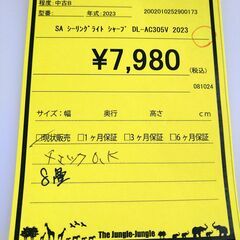 程度:中古B
型番: 年式:2023 2002010252900173
SA シーリングライト シャープ DL-AC305V 2023
¥7,980(税込)
サイズ:幅 奥行 高さ cm
081024
□現状販売 □1ヶ月保証 □3ヶ月保証 □6ヶ月保証
チェックOK
8畳
The Jungle-Jungle